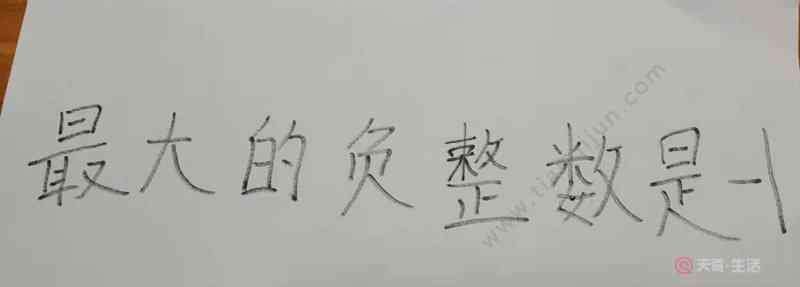 最大的负整数是-1
www.tianqijun.com
天奇·生活